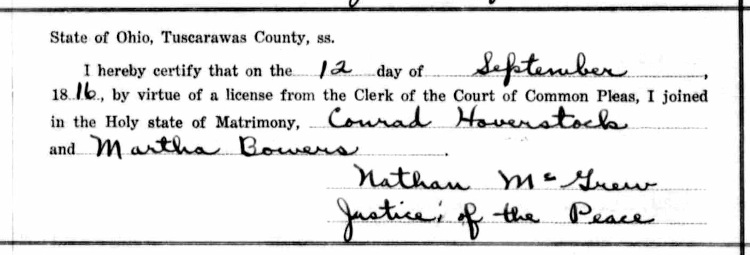 State of Ohio, Tuscarawas County, ss.
I hereby certify that on the 12 day of September,
1816, by virtue of a license from the Clerk of the Court of Common Pleas, I joined
in the Holy state of Matrimony, Conrad Hoverstock
and Martha Bowers.
Nathan McGrew
Justice of the Peace